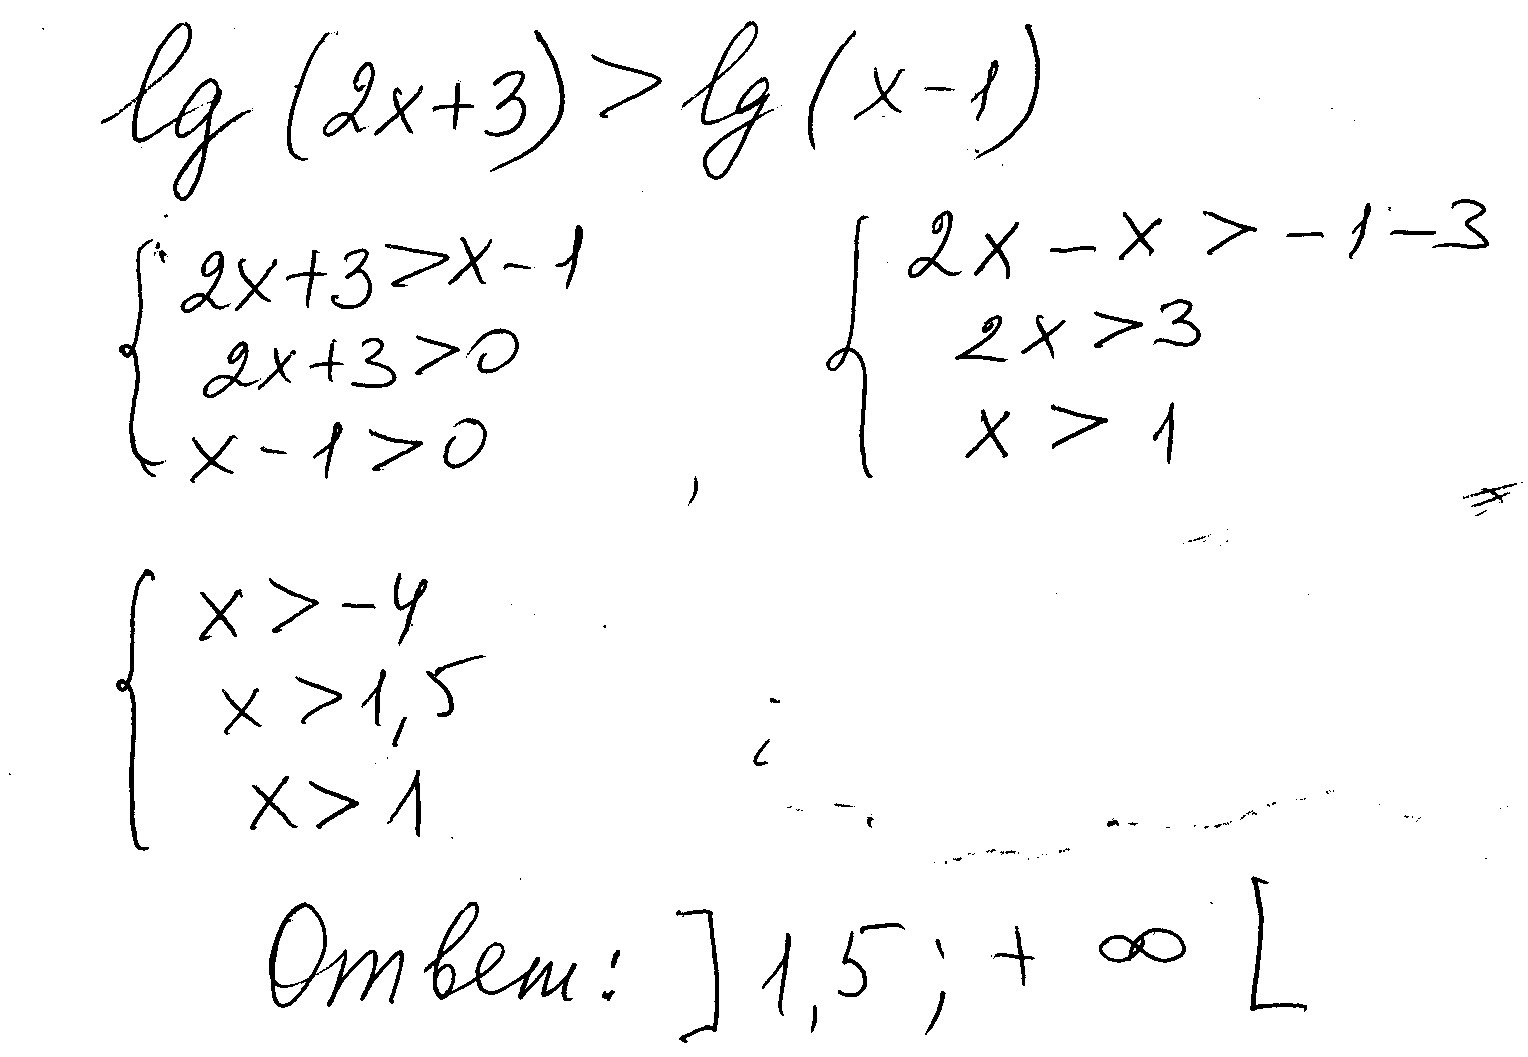 lg (2x+3) > lg (x-1)
{ 2x+3 > x-1
2x+3 > 0
x-1 > 0 ,
{ 2x - x > -1-3
2x > 3
x > 1
{ x > -4
x > 1,5
x > 1
Ответ: ]1,5; +∞[